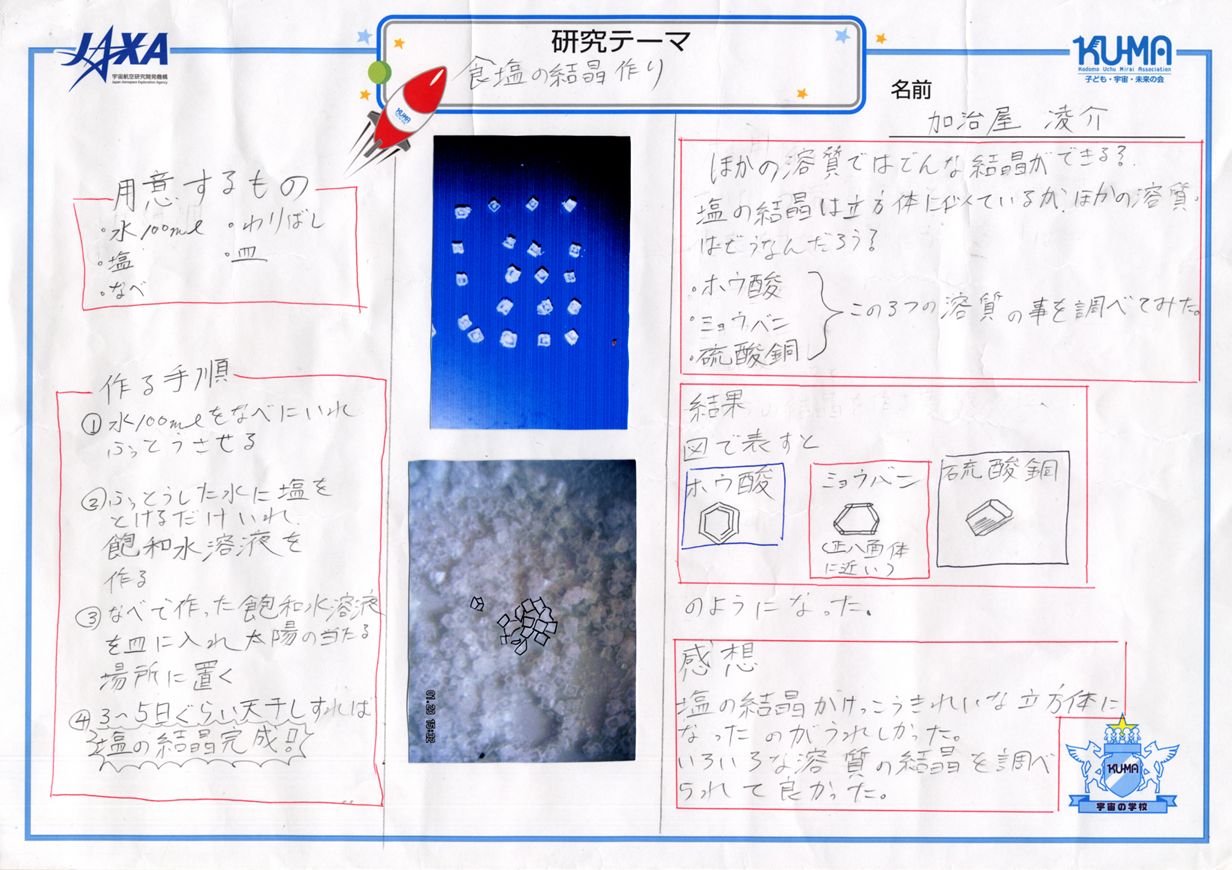 JAXA
宇宙航空研究開発機構
Japan Aerospace Exploration Agency
研究テーマ
食塩の結晶作り
KUMA
KU-MA
Kodomo Uchu Mirai Association
子ども・宇宙・未来の会
名前
加治屋 凌介
用意するもの
・水100ml ・わりばし
・塩 ・皿
・なべ
作る手順
①水100mlをなべにいれ
ふっとうさせる
②ふっとうした水に塩を
とけるだけいれ、
飽和水溶液を
作る
③なべで作った飽和水溶液
を皿に入れ太陽の当たる
場所に置く
④3〜5日ぐらい天干しすれば
塩の結晶完成!!
ほかの溶質ではどんな結晶ができる?
塩の結晶は立方体に似ているが、ほかの溶質
はどうなんだろう?
・ホウ酸
・ミョウバン
・硫酸銅
この3つの溶質の事を調べてみた。
結果
図で表すと
ホウ酸
ミョウバン
(正八面体
に近い)
硫酸銅
のようになった。
感想
塩の結晶がけっこうきれいな立方体に
なったのがうれしかった。
いろいろな溶質の結晶を調べ
られて良かった。
KU-MA
宇宙の学校